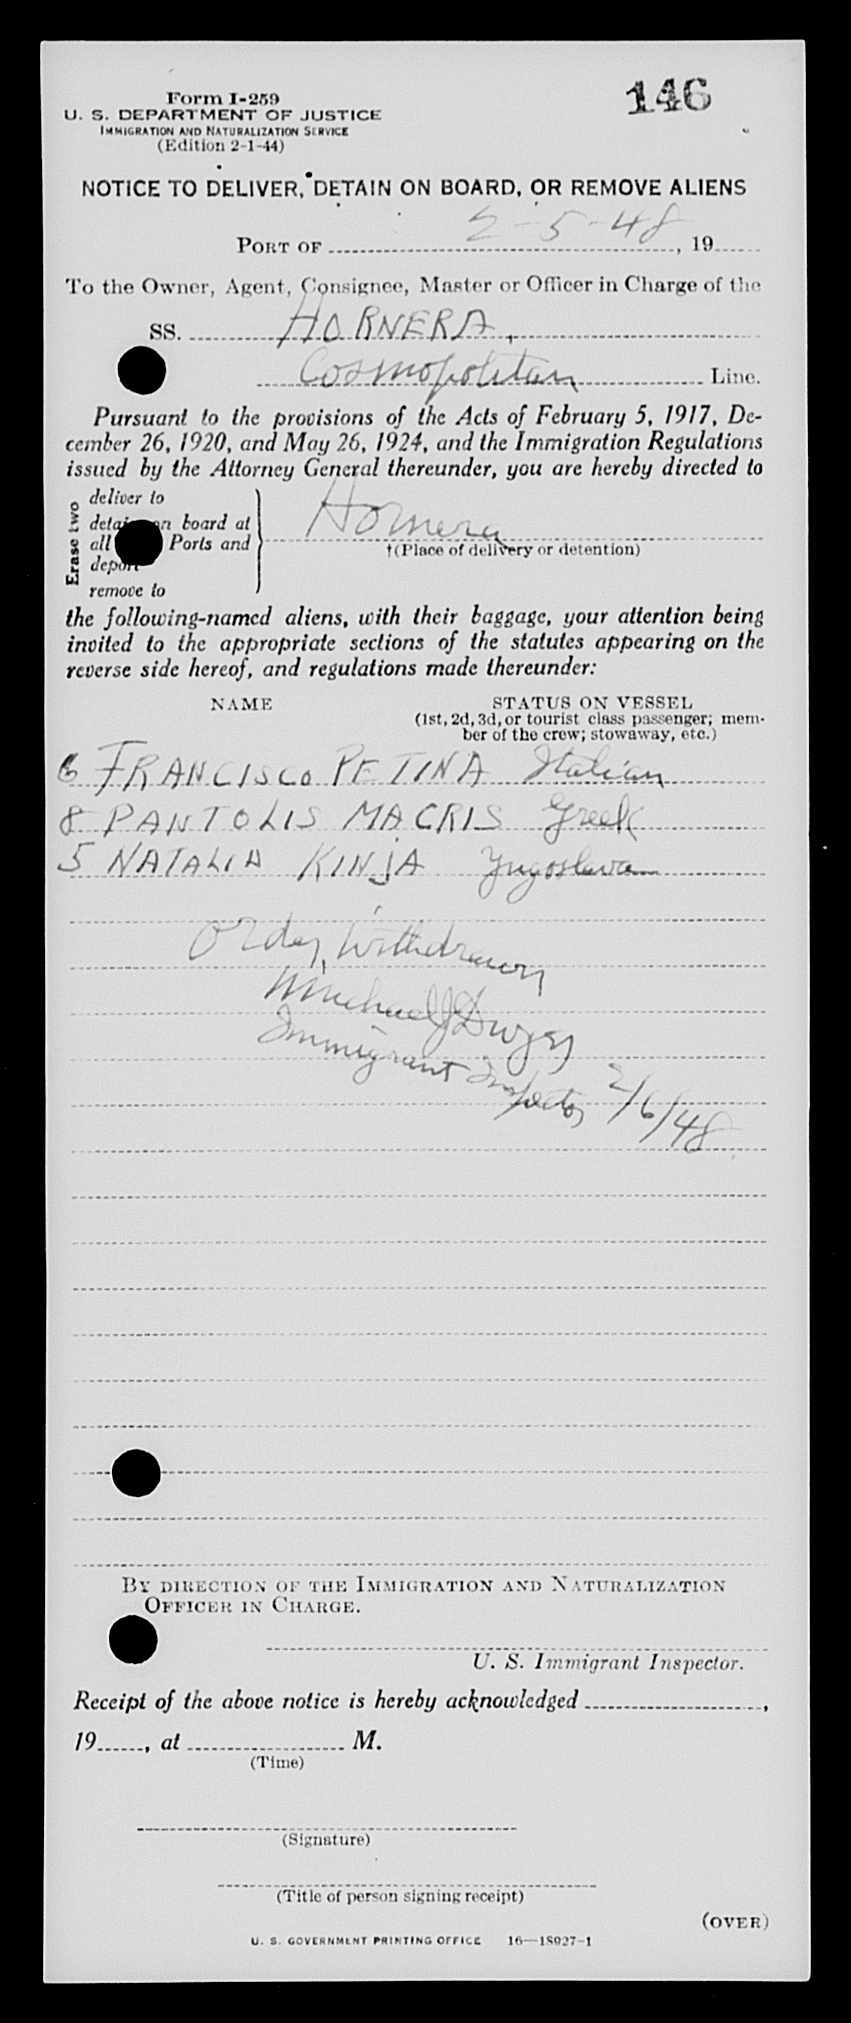 Form I-259
146
U. S. DEPARTMENT OF JUSTICE
IMMIGRATION AND NATURALIZATION SERVICE
(Edition 2-1-44)
NOTICE TO DELIVER, DETAIN ON BOARD, OR REMOVE ALIENS
PORT OF 2-5-48, 19
To the Owner, Agent, Consignee, Master or Officer in Charge of the
SS. HORNERA,
Cosmopolitan Line.
Pursuant to the provisions of the Acts of February 5, 1917, De-
cember 26, 1920, and May 26, 1924, and the Immigration Regulations
issued by the Attorney General thereunder, you are hereby directed to
Erase two
deliver to
detain on board at
all Ports and
deport
remove to
Hornera
†(Place of delivery or detention)
the following-named aliens, with their baggage, your attention being
invited to the appropriate sections of the statutes appearing on the
reverse side hereof, and regulations made thereunder:
NAME
STATUS ON VESSEL
(1st, 2d, 3d, or tourist class passenger; mem-
ber of the crew; stowaway, etc.)
6 FRANCISCO PETINA Italian
8 PANTOLIS MACRIS Greek
5 NATALIA KINJA Yugoslavia
Order Withdrawn
Michael J Dwyer
Immigrant Inspector 2/6/48
BY DIRECTION OF THE IMMIGRATION AND NATURALIZATION
OFFICER IN CHARGE.
U. S. Immigrant Inspector.
Receipt of the above notice is hereby acknowledged ,
19 , at M.
(Time)
(Signature)
(Title of person signing receipt)
(OVER)
U. S. GOVERNMENT PRINTING OFFICE 16—18927-1